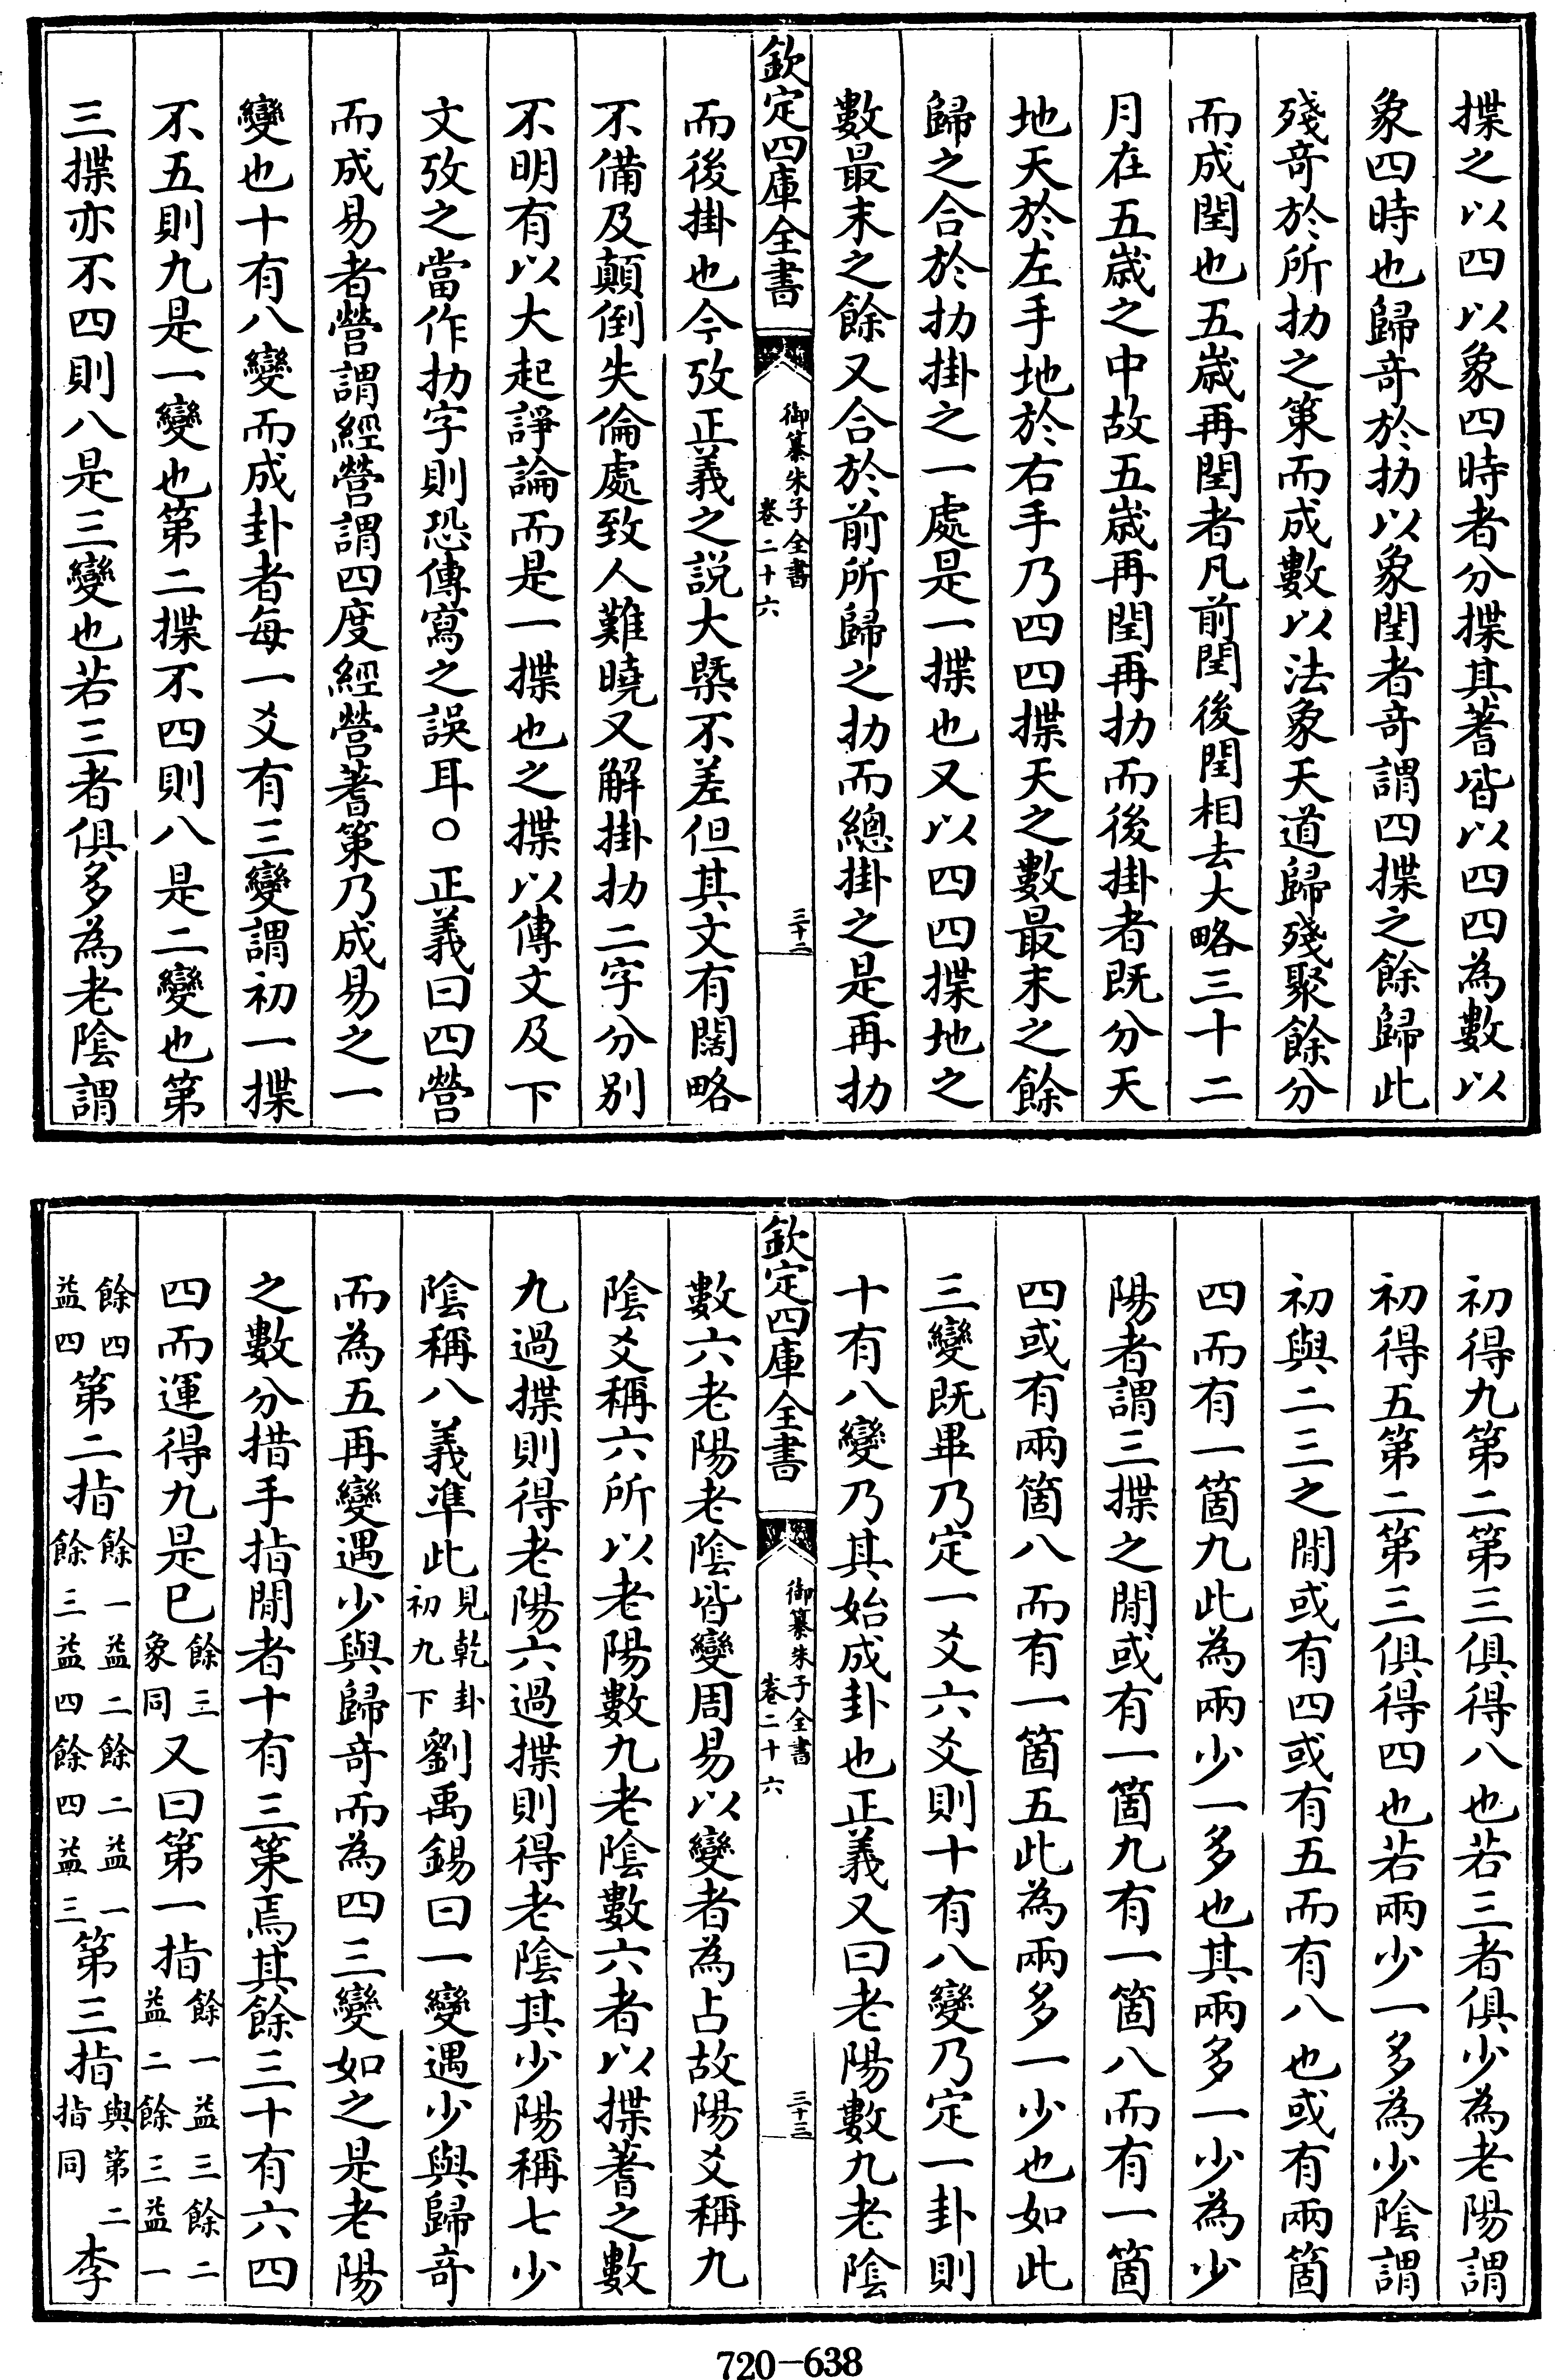 揲之以四以象四時者分揲其蓍皆以四四為數以
象四時也歸奇於扐以象閏者奇謂四揲之餘歸此
殘奇於所扐之策而成數以法象天道歸殘聚餘分
而成閏也五歲再閏者凡前閏後閏相去大略三十二
月在五歲之中故五歲再閏再扐而後掛者既分天
地天於左手地於右手乃四四揲天之數最末之餘
歸之合於扐掛之一處是一揲也又以四四揲地之
數最末之餘又合於前所歸之扐而總掛之是再扐
欽定四庫全書
御纂朱子全書
卷二十六
三十二
而後掛也今攷正義之説大槩不差但其文有闊略
不備及顛倒失倫處致人難曉又解掛扐二字分別
不明有以大起諍論而是一揲也之揲以傳文及下
文攷之當作扐字則恐傳寫之誤耳○正義曰四營
而成易者營謂經營謂四度經營蓍策乃成易之一
變也十有八變而成卦者每一爻有三變謂初一揲
不五則九是一變也第二揲不四則八是二變也第
三揲亦不四則八是三變也若三者俱多為老陰謂
初得九第二第三俱得八也若三者俱少為老陽謂
初得五第二第三俱得四也若兩少一多為少陰謂
初與二三之間或有四或有五而有八也或有兩箇
四而有一箇九此為兩少一多也其兩多一少為少
陽者謂三揲之間或有一箇九有一箇八而有一箇
四或有兩箇八而有一箇五此為兩多一少也如此
三變既畢乃定一爻六爻則十有八變乃定一卦則
十有八變乃其始成卦也正義又曰老陽數九老陰
欽定四庫全書
御纂朱子全書
卷二十六
三十三
數六老陽老陰皆變周易以變者為占故陽爻稱九
陰爻稱六所以老陽數九老陰數六者以揲蓍之數
九過揲則得老陽六過揲則得老陰其少陽稱七少
陰稱八義準此見乾卦初九下劉禹錫曰一變遇少與歸奇
而為五再變遇少與歸奇而為四三變如之是老陽
之數分措手指間者十有三策焉其餘三十有六四
四而運得九是已餘三象同又曰第一指餘一益三餘二益二餘三益一
餘四益四第二指餘一益二餘二益一餘三益四餘四益三第三指與第二指同李
720-638